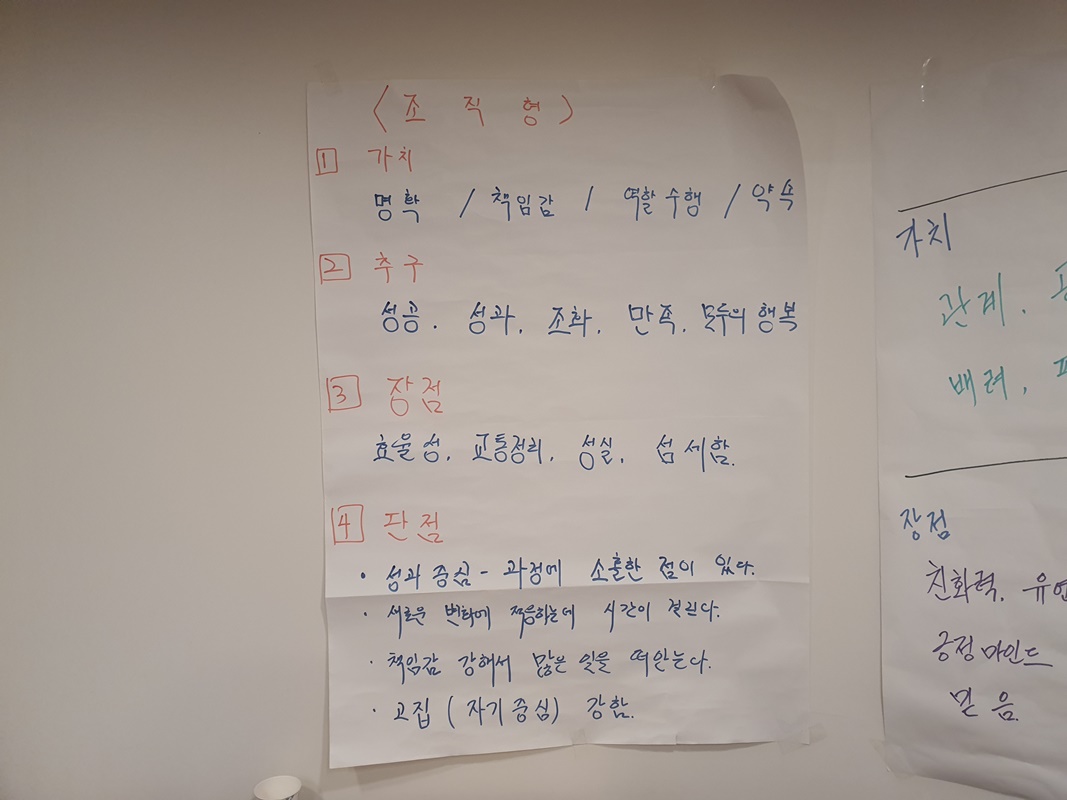 <조직형>
1 가치
명확 / 책임감 / 역할수행 / 약속
2 추구
성공. 성과. 조화. 만족. 모두의 행복
3 장점
효율성. 교통정리. 성실. 섬세함.
4 단점
• 성과중심 - 과정에 소홀한 점이 있다.
• 새로운 변화에 적응하는데 시간이 걸린다.
• 책임감 강해서 많은 일을 떠안는다.
• 고집 (자기중심) 강함.
가치
관계.
배려.
장점
친화력. 유연
긍정마인드
믿음.